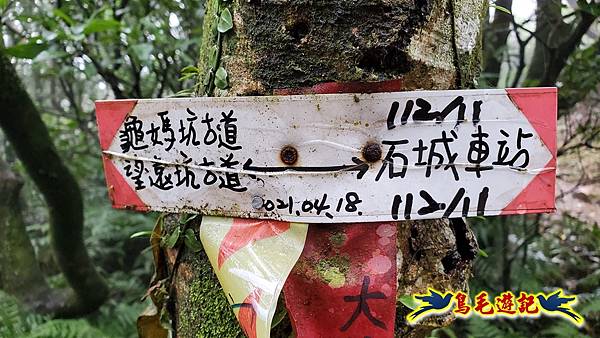 112/11
龜媽坑古道
望遠坑古道
石城車站
2021.04.18.
112/11
大
鳥毛遊記